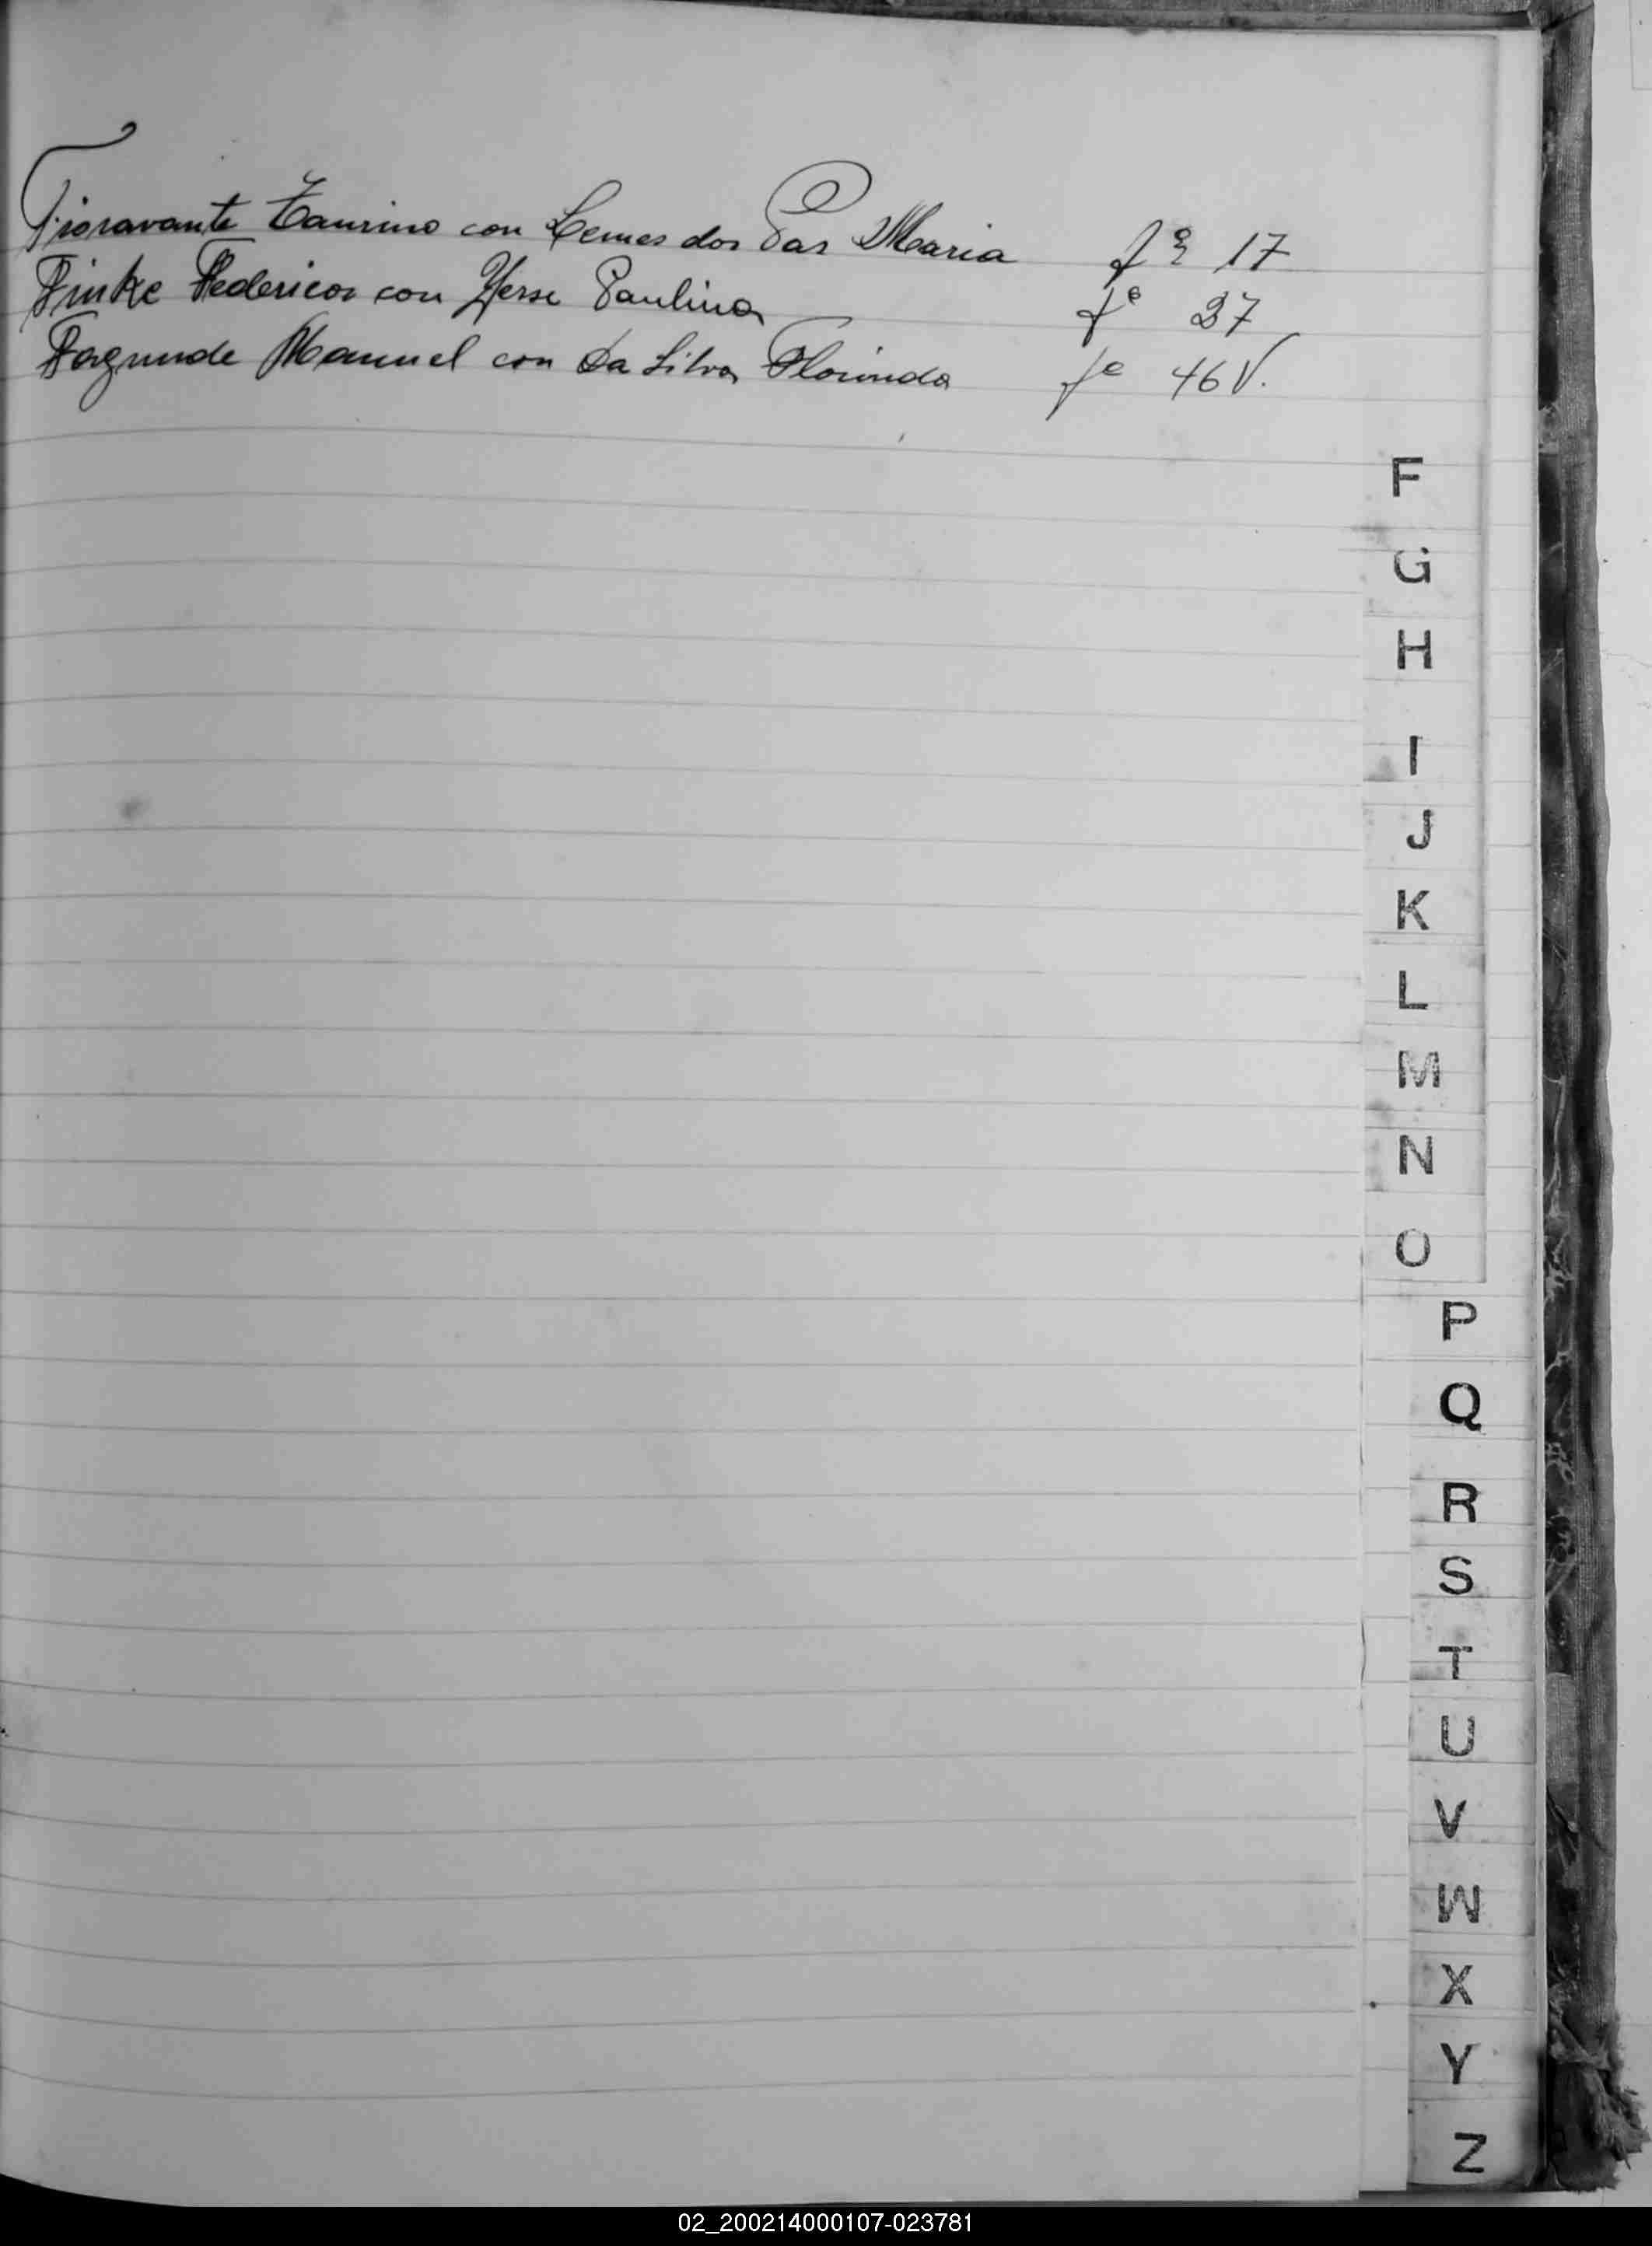 Fioravante Taurino con Lemes dos Pas Maria fº 17
Finke Federico con Hesse Paulina fº 37
Fagunde Manuel con Da Silva Florinda fº 46 V.
F
G
H
I
J
K
L
M
N
O
P
Q
R
S
T
U
V
W
X
Y
Z
02_200214000107-023781